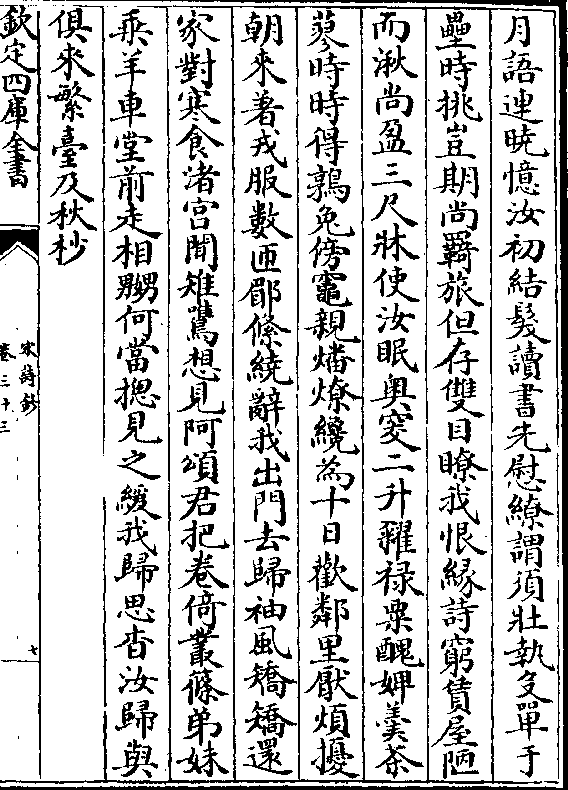 月語連曉憶汝初結髮讀書先慰繚謂須壯執殳單于
壘時挑豈期尚羇旅但存雙目瞭我恨緣詩窮賃屋陋
而湫尚盈三尺牀使汝眠奥窔二升糴禄粟醜婢羮茶
蓼時時得鶉兔傍竈親燔燎纔為十日歡鄰里厭煩擾
朝來著戎服數匝鄖絛繞辭我出門去歸袖風矯矯還
家對寒食渚宫聞雉鷕想見阿頌君把卷倚叢篠弟妹
乘羊車堂前走相嬲何當摠見之緩我歸思杳汝歸與
俱來繁臺及秋杪
欽定四庫全書
宋詩鈔
卷三十三
七